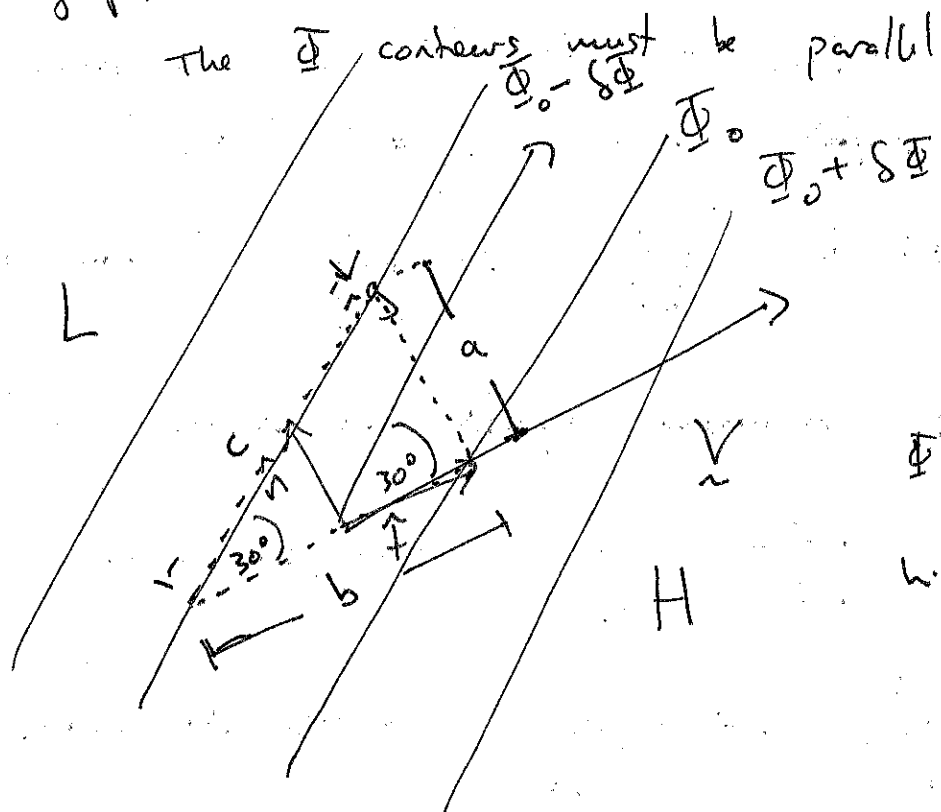 The Φ contours must be parallel
Φ₀ - δΦ
Φ₀
Φ₀ + δΦ
L
a
c
n
30°
V
Φ
30°
t̂
b
H